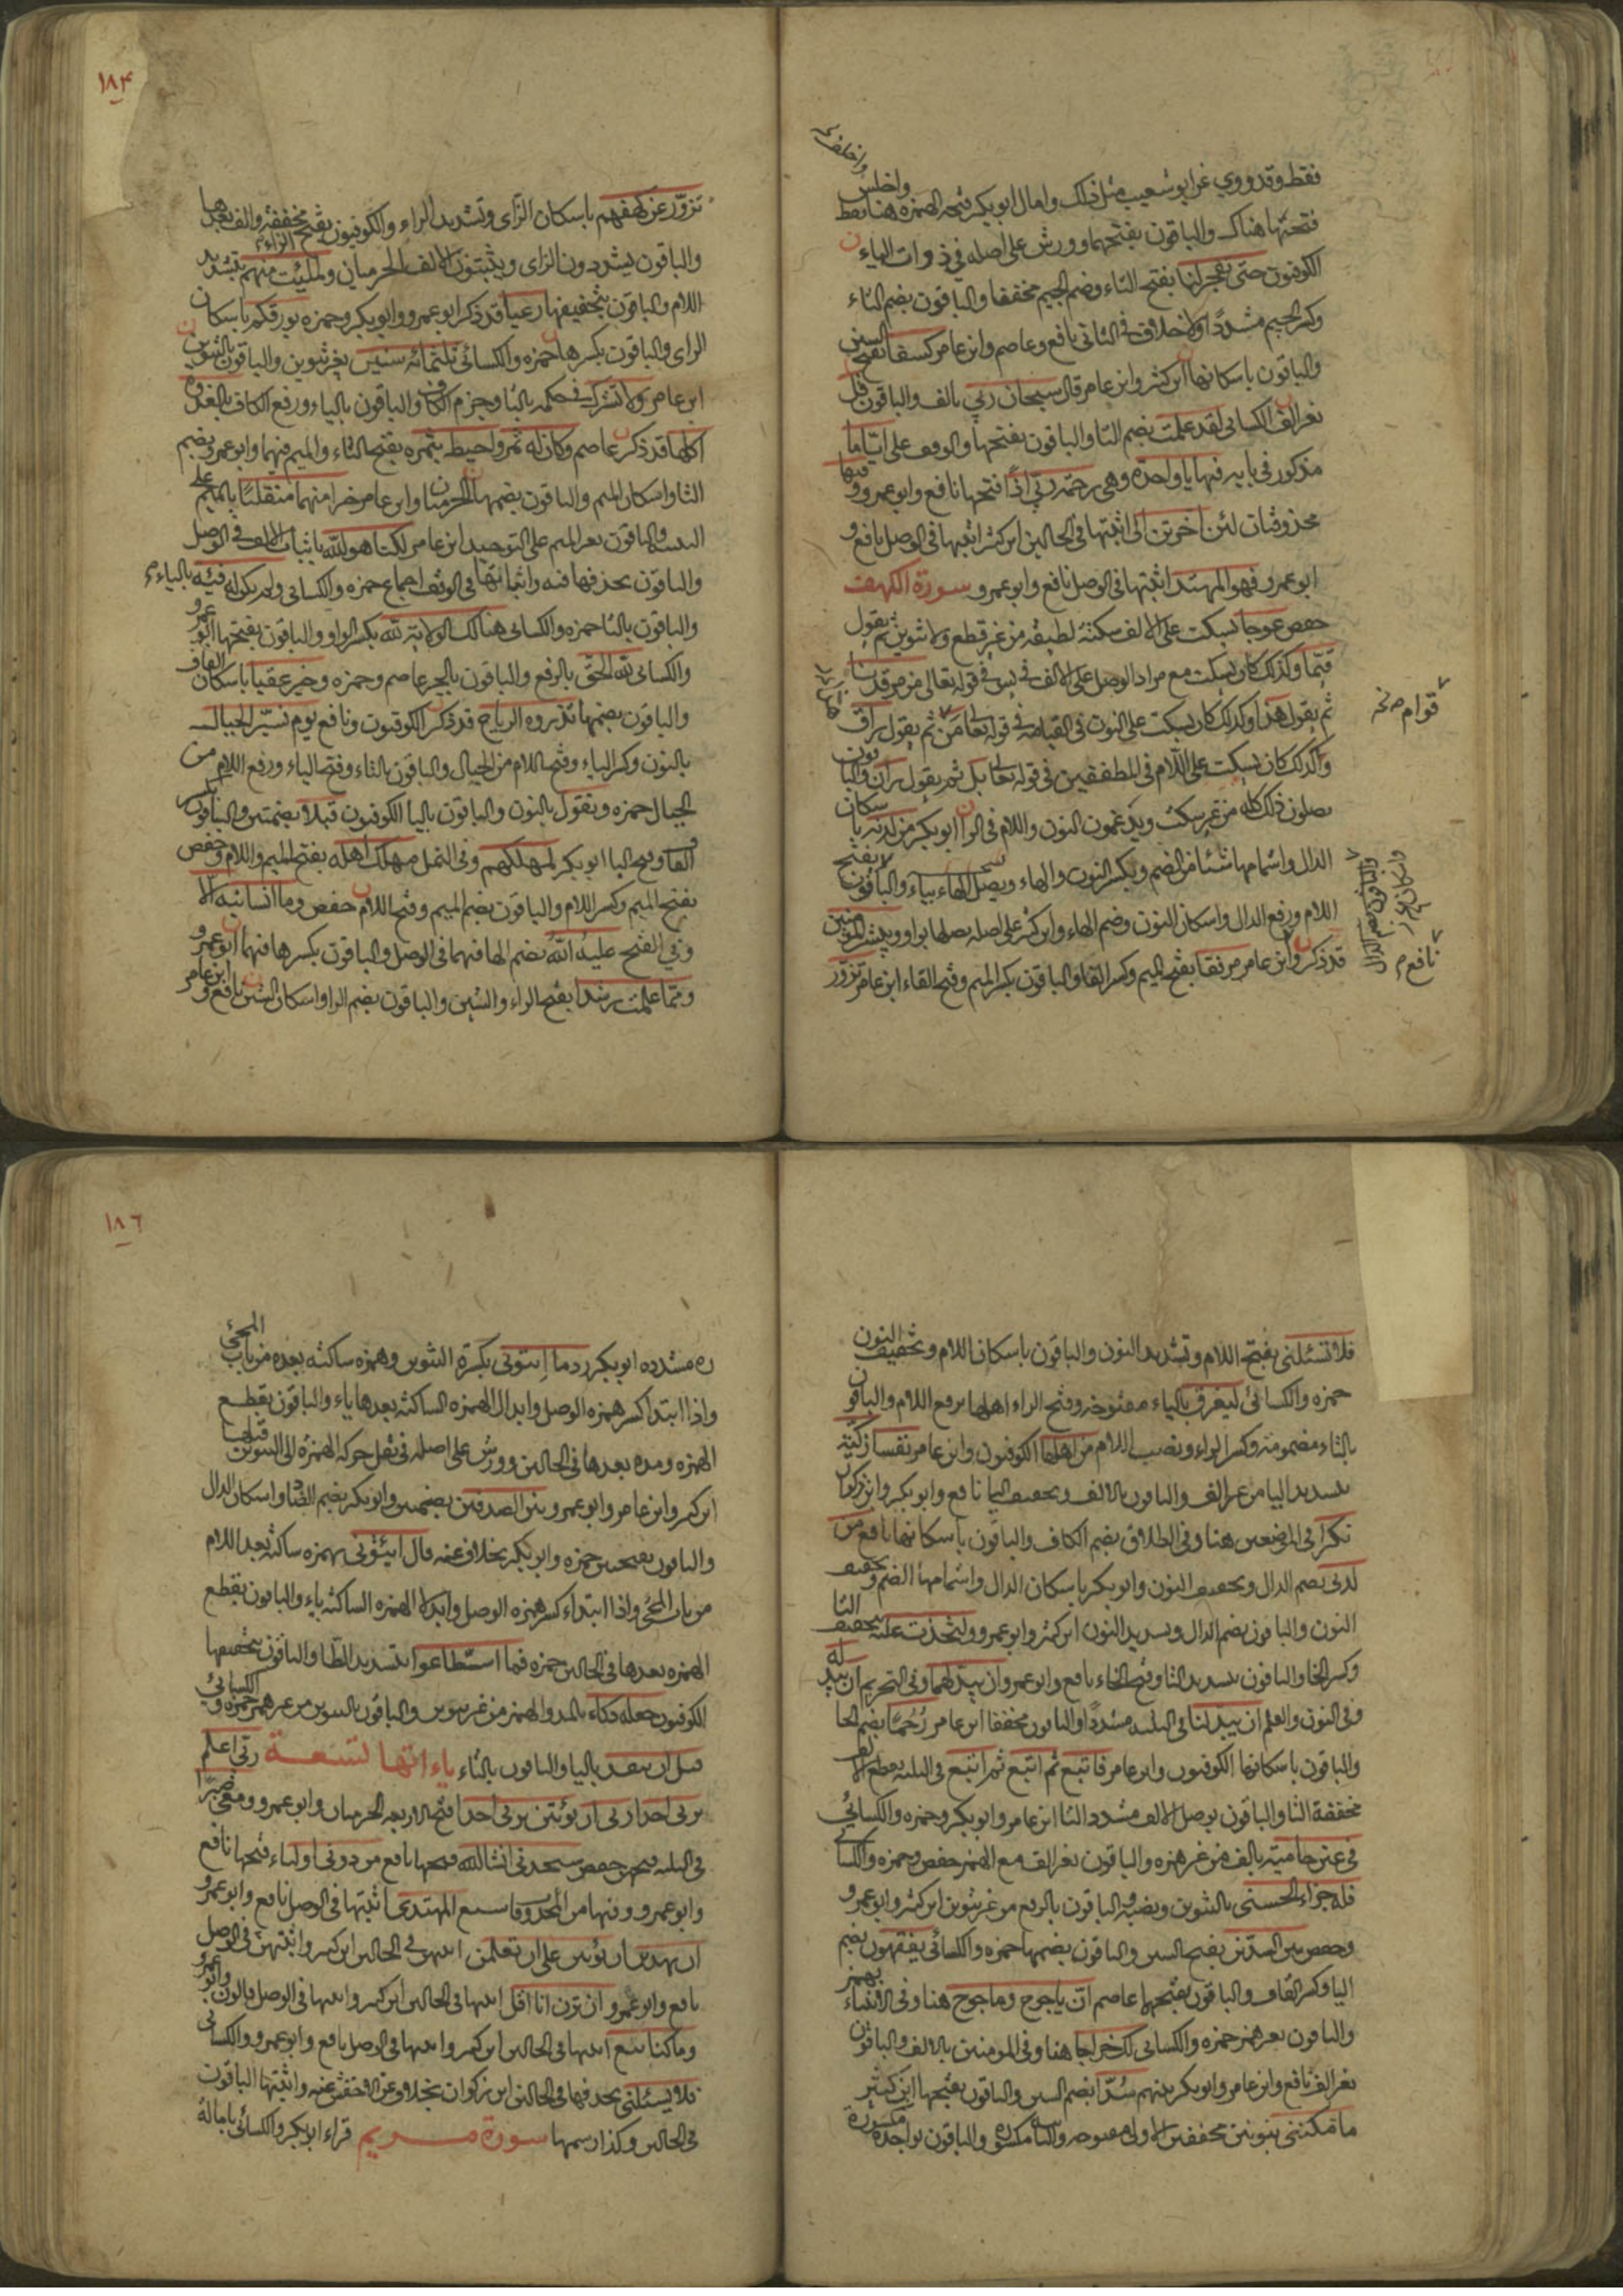 فقط وقد روي عن ابو شعيب مثل ذلك وامال ابو بكر فتحه الهمزة هنا فقط واخلص
فتحتها هناك والباقون بفتحهما وورش على اصله في ذوات الياء
الكوفيون حتى تفجر لنا بفتح التاء وضم الجيم مخففا والباقون بضم التاء
وكسر الجيم مشددا ولا خلاف في الثاني نافع وعاصم وابن عامر كسفا بفتح السين
والباقون باسكانها ابن كثير وابن عامر قال سبحان ربي بالف والباقون قل
بغير الف الكسائي لقد علمت بضم التا والباقون بفتحها والوقف على ايّا ما
مذكور في بابه فيها ياء واحدة وهي رحمة ربي اذا فتحها نافع وابو عمرو وفيها
محذوفتان لئن اخرتن الى اثبتها في الحالين ابن كثير اثبتها في الوصل نافع و
ابو عمرو فهو المهتد اثبتها في الوصل نافع وابو عمرو سورة الكهف
حفص عوجا يسكت على الالف سكتة لطيفة من غير قطع ولا تنوين ثم يقول
قيّما وكذلك كان يسكت مع مراد الوصل على الالف في يس في قوله تعالى من مرقدنا
ثم يقول هذا وكذلك كان يسكت على النون في القيامة في قوله تعا من ثم يقول راق
وكذلك كان يسكت على اللام في المطففين في قوله تعا بل ثم يقول ران والباقون
يصلون ذلك كله من غير سكت ويدغمون النون واللام في الرا ابو بكر من لدنه باسكان
الدال واشمامها شيئا من الضم وبكسر النون والهاء ويصل الهاء بياء والباقون لا بفتح
اللام ورفع الدال واسكان النون وضم الهاء وابن كثير على اصله يصلها بواو ويبشر المؤمنين
قد ذكر وابن عامر مرفقا بفتح الميم وكسر الفا والباقون بكسر الميم وفتح الفاء ابن عامر تزورّ
قوام نخه
نافع م
١٨٤
تزورّ عن كهفهم باسكان الزاى وتشديد الراء والكوفيون بفتح الزاء مخففة والف بعدها
والباقون يشددون الزاى ويثبتون الالف الحرميان ولملّئت منهم بتشديد
اللام والباقون بتخفيفها رعبا قد ذكر ابو عمرو وابو بكر وحمزه بورقكم باسكان
الراى والباقون بكسرها حمزه والكسائى ثلثمائة سنين بغير تنوين والباقون بالتنوين
ابن عامر ولا تشرك في حكمه بالتا وجزم الكاف والباقون بالياء ورفع الكاف بالغدوة
اكلها قد ذكر عاصم وكان له ثمر واحيط بثمره بفتح الثاء والميم فيهما وابو عمرو بضم
الثا واسكان الميم والباقون بضمها الحرميان وابن عامر خيرا منهما منقلبا بالميم على
التثنية والباقون بغير الميم على التوحيد ابن عامر لكنا هو الله باثبات الالف في الوصل
والباقون بحذفها فيه واثباتها في الوقف اجماع حمزه والكسائى ولم يكن له فئة بالياء
والباقون بالتا حمزه والكسائى هنالك الولاية لله بكسر الواو والباقون بفتحها ابو عمرو
والكسائى لله الحقّ بالرفع والباقون بالجر عاصم وحمزه وخير عقبا باسكان القاف
والباقون بضمها تذروه الرياح قد ذكر الكوفيون ونافع يوم نسيّر الجبال
بالنون وكسر الياء وفتح اللام من الجبال والباقون بالتاء وفتح الياء ورفع اللام من
الجبال حمزه ويقول بالنون والباقون باليا الكوفيون قبلا بضمتين والباقون بكسر
القاف وفتح البا ابو بكر لمهلكهم وفي النمل مهلك اهله بفتح الميم واللام وحفص
بفتح الميم وكسر اللام والباقون بضم الميم وفتح اللام حفص وما انسانيه الا
وفي الفتح عليه الله بضم الها فيهما في الوصل والباقون بكسرها فيهما ابو عمرو
وممّا علمت رشدا بفتح الراء والشين والباقون بضم الرا واسكان الشين نافع وابن عامر
فلا تسئلنى بفتح اللام وتشديد النون والباقون باسكان اللام وتخفيف النون
حمزه والكسائى ليغرق بالياء مفتوحة وفتح الراء اهلها برفع اللام والباقون
بالتاء مضمومة وكسر الراء ونصب اللام من اهلها الكوفيون وابن عامر نفسا زكيّة
بتشديد اليا من غير الف والباقون بالالف وتخفيف اليا نافع وابو بكر وابن ذكوان
نكرا في الموضعين هنا وفي الطلاق بضم الكاف والباقون باسكانها نافع من
لدنى بضم الدال وتخفيف النون وابو بكر باسكان الدال واشمامها الضم وتخفيف
النون والباقون بضم الدال وتشديد النون ابن كثير وابو عمرو ولتخذت عليه بتخفيف التا
وكسر الخا والباقون بتشديد التا وفتح الخاء نافع وابو عمرو ان يبدّلهما وفي التحريم ان يبدّله
وفي النون والقلم ان يبدّلنا في الثلثة مشددا والباقون مخففا ابن عامر رُحُمًا بضم الحا
والباقون باسكانها الكوفيون وابن عامر فاتبع ثم اتبع ثم اتبع في الثلثة بقطع الالف
مخففة التا والباقون بوصل الالف مشدد التا ابن عامر وابو بكر وحمزه والكسائىُ
في عين حامية بالف من غير همزه والباقون بغير الف مع الهمز حفص وحمزه والكسائى
فله جزاء الحسنى بالتنوين ونصبه والباقون بالرفع من غير تنوين ابن كثير وابو عمرو
وحفص بين السدّين بفتح السين والباقون بضمها حمزه والكسائى يفقهون بضم
اليا وكسر القاف والباقون بفتحهما عاصم انّ ياجوج وماجوج هنا وفي الانبياء بهمز
والباقون بغير همز حمزه والكسائى لك خراجا هنا وفي المؤمنين بالالف والباقون
بغير الف نافع وابن عامر وابو بكر بينهم سُدّا بضم السين والباقون بفتحها ابن كثير
ما مكننى بنونين مخففين الاولى مفتوحة والثانية مكسورة والباقون بواحدة مكسورة
١٨٦
ره مشدده ابو بكر ردما اِيتونى بكسرة التنوين وهمزه ساكنه بعده من باب المجئ
واذا ابتدا كسر همزه الوصل وابدل الهمزه الساكنه بعدها ياء والباقون بقطع
الهمزه ومده بعدها في الحالين وورش على اصله في نقل حركه الهمزه الى التنوين قبلها
ابن كثير وابن عامر وابو عمرو بين الصدفين بضمتين وابو بكر بضم الصاد واسكان الدال
والباقون بفتحتين حمزه وابو بكر بخلاف عنه قال ائتونى بهمزه ساكنه بعد اللام
من باب المجئ واذا ابتداء كسر همزه الوصل وابدل الهمزه الساكنه ياء والباقون بقطع
الهمزه بعدها في الحالين حمزه فما اسطّاعوا بتشديد الطّا والباقون بتخفيفها
الكوفيون جعله دكاء بالمد والهمز من غير تنوين والباقون بالتنوين من غير همز حمزه والكسائى
قبل ان ينفد باليا والباقون بالتاء ياءاتها تسعة ربّى اعلم
بربى احدا ربى ان يؤتين بربى احدا فتح الاربعه الحرميان وابو عمرو ومعى صبرا
في الثلثه فتحهن حفص ستجدنى انشا الله فتحها نافع من دونى اولياء فتحها نافع
وابو عمرو وفيها من المحذوفات سبع المهتدى اثبتها في الوصل نافع وابو عمرو
ان يهدين ان يؤتين على ان تعلمن اثبتهن في الحالين ابن كثير واثبتهن في الوصل
نافع وابو عمرو ان ترن انا اقل اثبتها في الحالين ابن كثير واثبتها في الوصل قالون وابو عمرو
وما كنا نبغ اثبتها في الحالين ابن كثير واثبتها في الوصل نافع وابو عمرو والكسائى
فلا تسئلنى بحذفها في الحالين ابن ذكوان بخلاف عن الاخفش عنه واثبتها الباقون
في الحالين وكذا رسمها سورة مريم قراء ابو بكر والكسائى بامالة